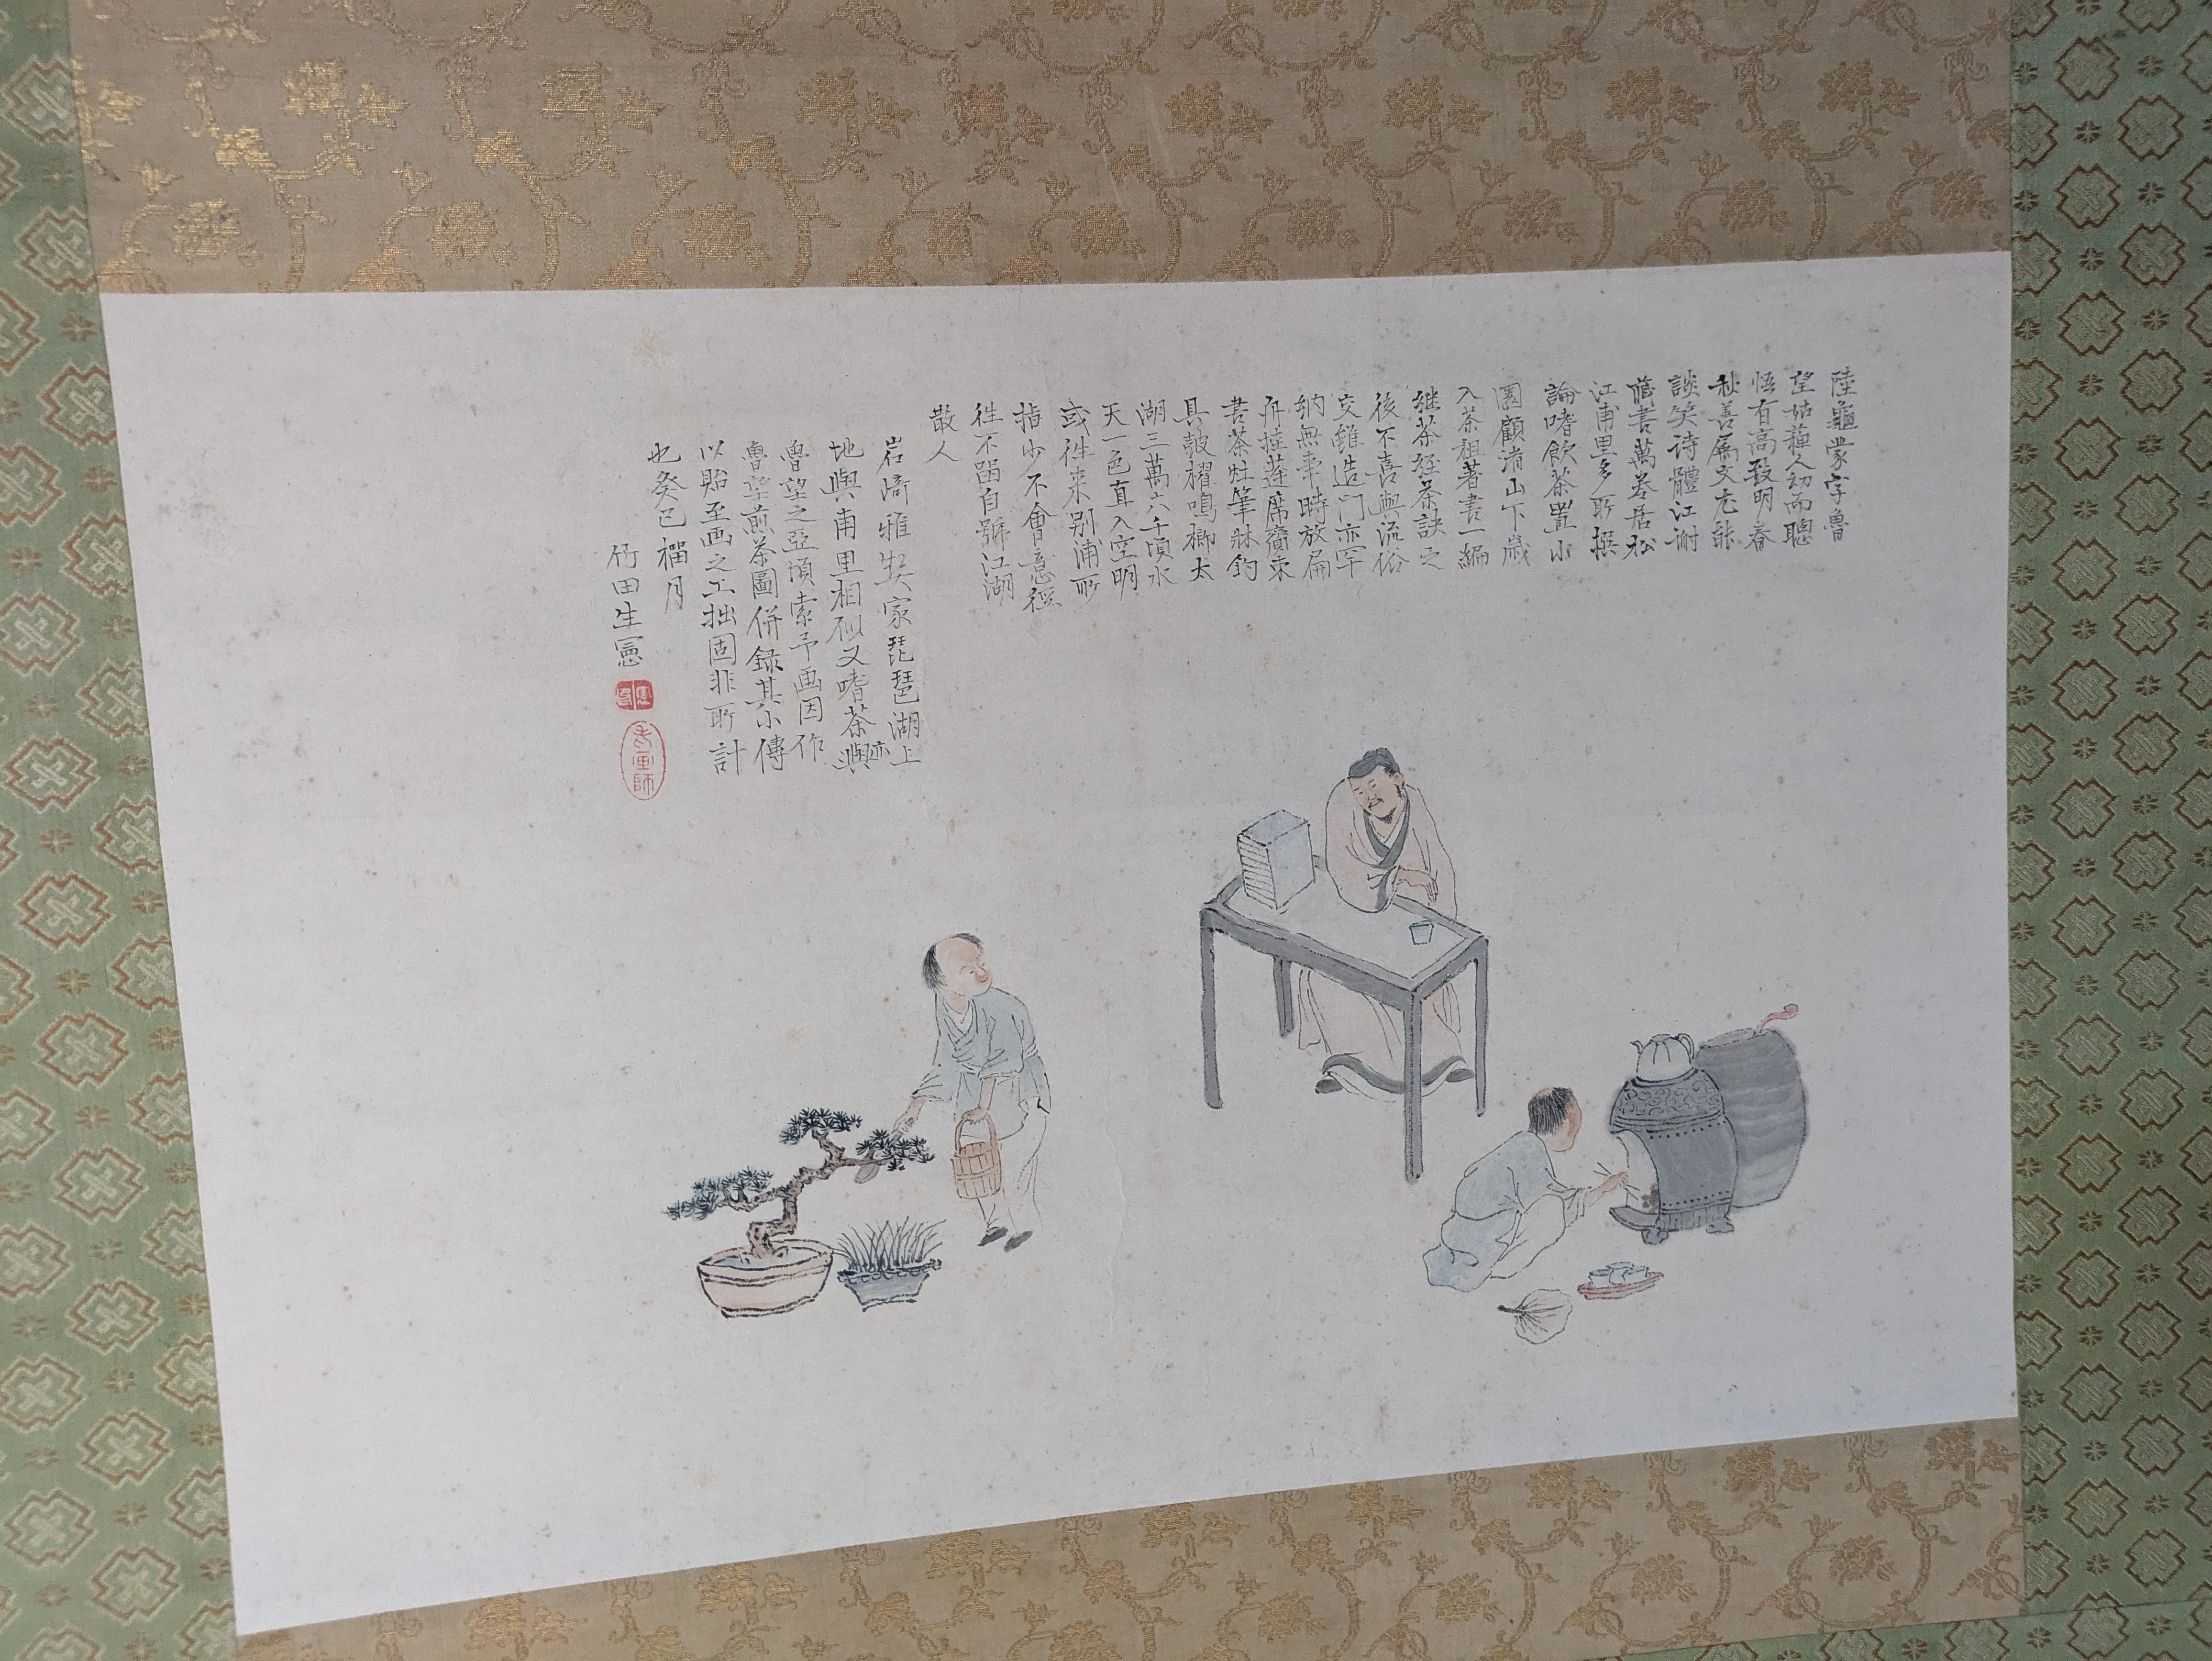 陸龜蒙字魯
望姑蘓人幼而聰
悟有高致明春
秋善属文尤能
談笑诗體江謝
蔵書萬卷居松
江甫里多所撰
論嗜飲茶置小
園顧渚山下歳
入茶租著書一編
継茶経茶訣之
後不喜與流俗
交雖造門亦罕
納無事時放扁
舟挂蓬席齎束
書茶灶筆牀釣
具皷櫂鳴榔太
湖三萬六千頃水
天一色直入空明
或徃来别浦所
指少不會意徑
徃不留自號江湖
散人
岩﨑雅契家琵琶湖上
地與甫里相似又嗜茶亦與
魯望之亞頃索予画因作
魯望煎茶圖併録其小傳
以貽至画之工拙固非所計
也癸巳榴月
竹田生憲
老画師